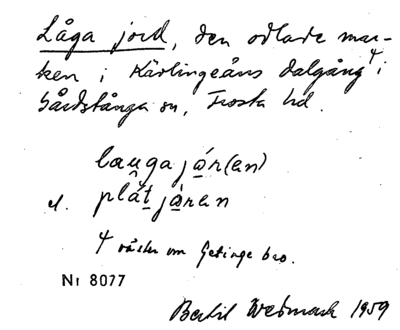 Låga jord, den odlade mar-
ken i Kävlingeåns dalgång⁴ i
Gårdstånga sn, Frosta hd.
lau̯gajo̱r(en)
el. plåtjo̱ren
4 väster om Getinge bro.
Nr 8077
Bertil Wetmark 1959